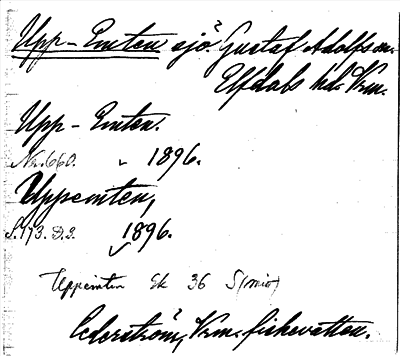 Upp-Emten sjö? Gustaf Adolfs sn.
Elfdals hd. Vrm.
Upp-Emten.
No. 660. " 1896.
Uppemten,
S. 173. D. 3. 1896.
Uppemten Ek 36 S(mio)
Cederström, Vrm. fiskevatten.